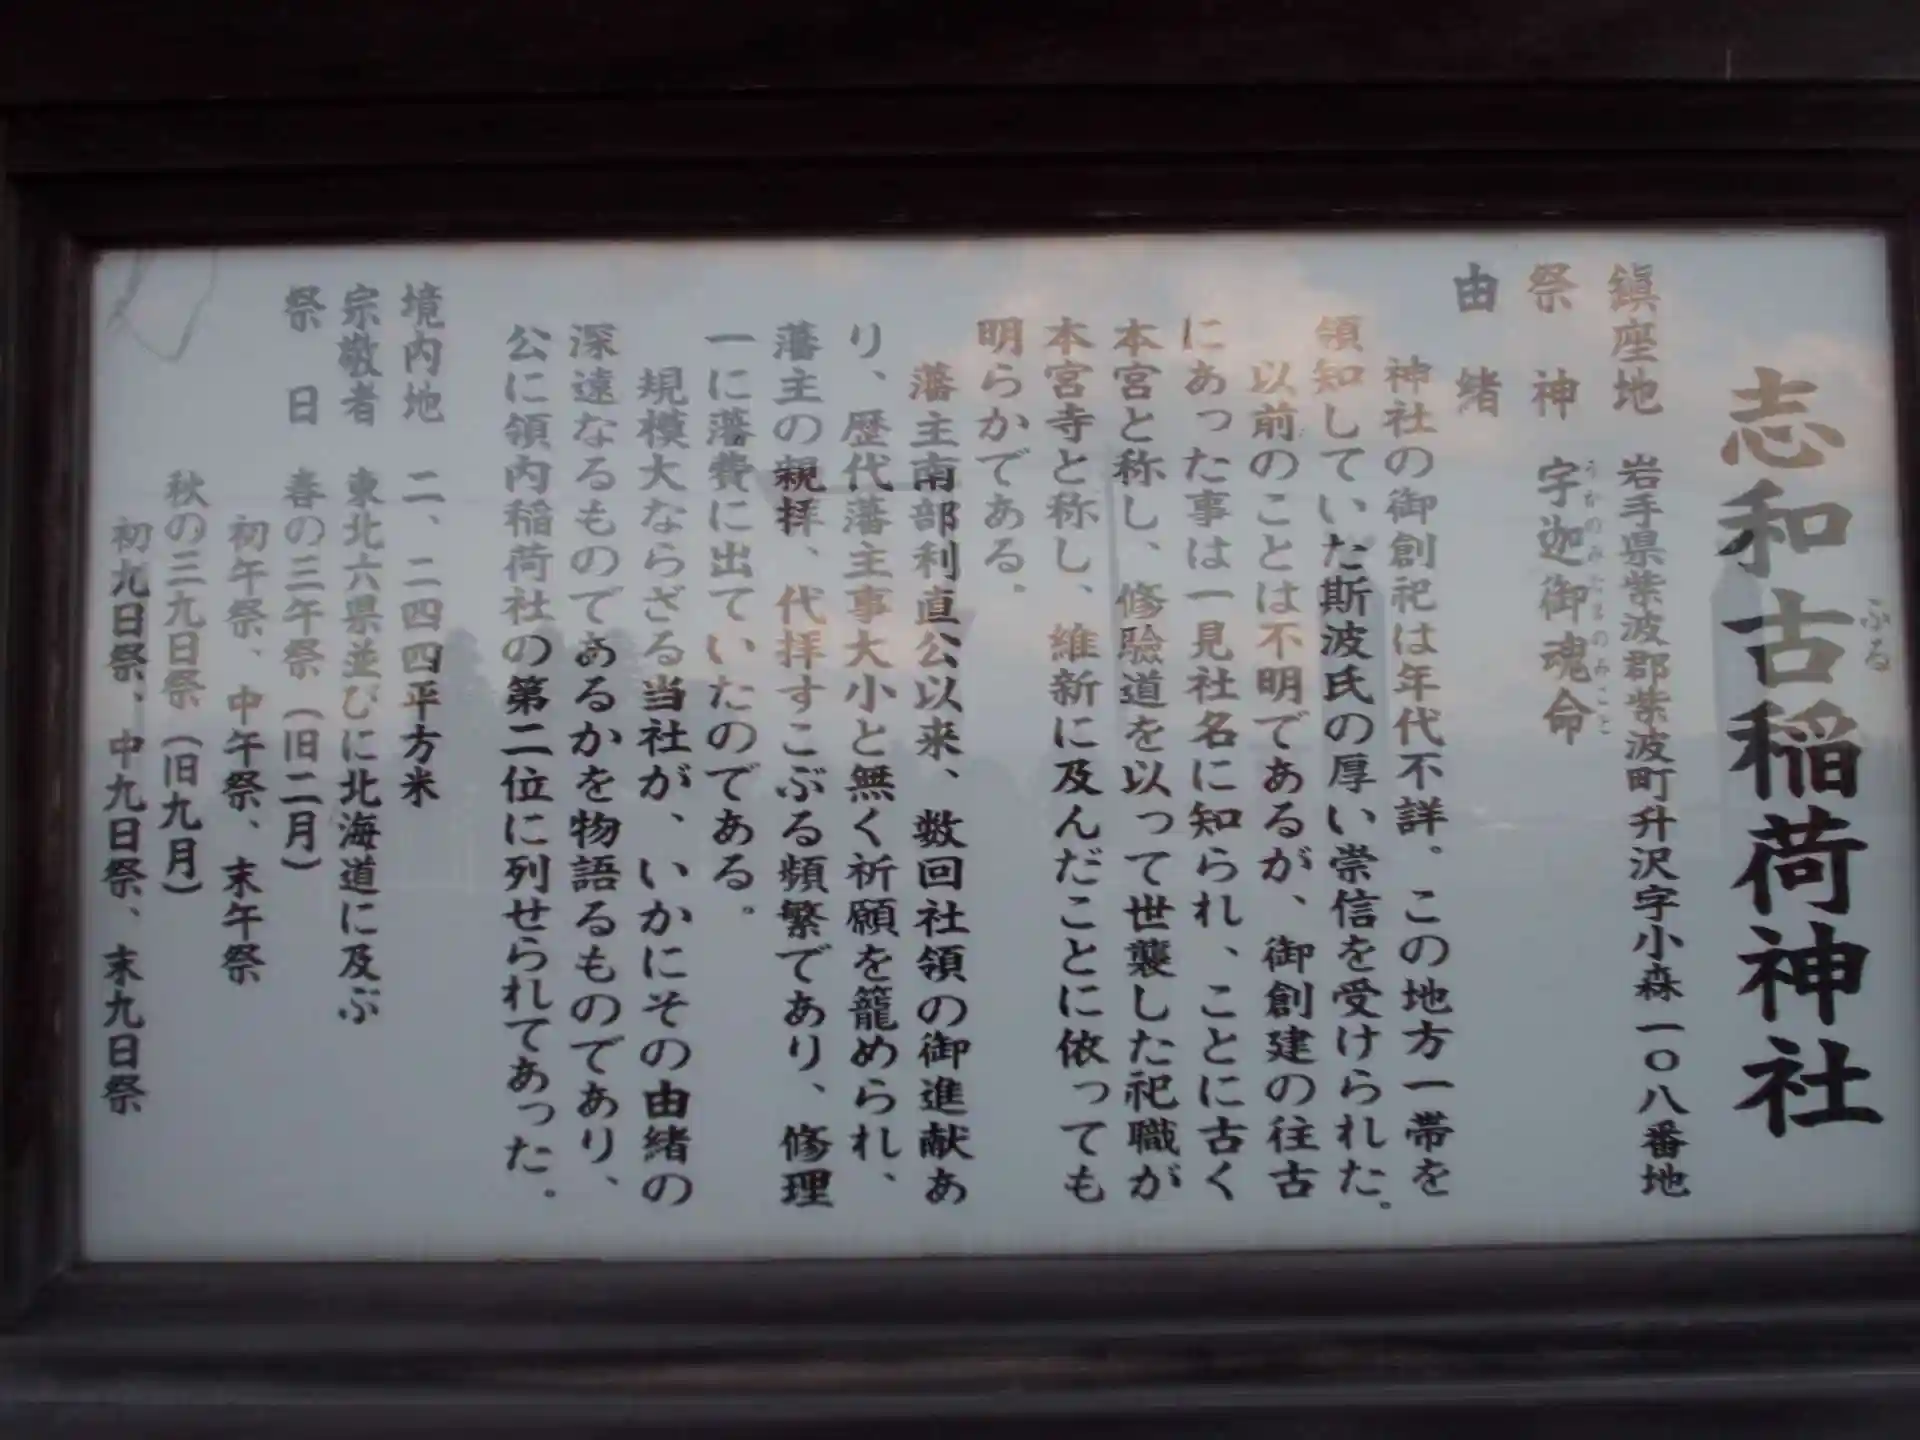 志和古稲荷神社
ふる
鎮座地 岩手県紫波郡紫波町升沢字小森一〇八番地
祭神 宇迦御魂命
うかのみたまのみこと
由緒
神社の御創祀は年代不詳。この地方一帯を
領知していた斯波氏の厚い崇信を受けられた。
以前のことは不明であるが、御創建の往古
にあった事は一見社名に知られ、ことに古く
本宮と称し、修験道を以って世襲した祀職が
本宮寺と称し、維新に及んだことに依っても
明らかである。
藩主南部利直公以来、数回社領の御進献あ
り、歴代藩主事大小と無く祈願を籠められ、
藩主の親拝、代拝すこぶる頻繁であり、修理
一に藩費に出ていたのである。
規模大ならざる当社が、いかにその由緒の
深遠なるものであるかを物語るものであり、
公に領内稲荷社の第二位に列せられてあった。
境内地 二、二四四平方米
宗敬者 東北六県並びに北海道に及ぶ
祭日 春の三午祭(旧二月)
初午祭、中午祭、末午祭
秋の三九日祭(旧九月)
初九日祭、中九日祭、末九日祭